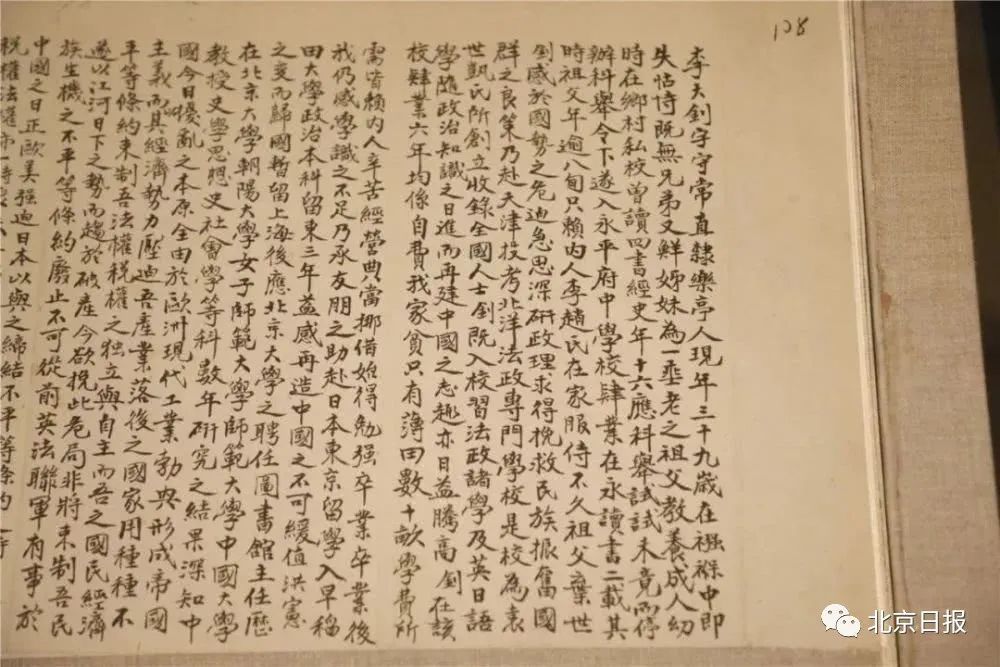 128
李大釗字守常直隸樂亭人現年三十九歲在襁褓中即
失怙恃既無兄弟又鮮姊妹為一垂老之祖父教養成人幼
時在鄉村私校曾讀四書經史年十六應科舉試試未竟而停
辦科舉令下遂入永平府中學校肄業在永讀書二載其
時祖父年逾八旬只賴內人李趙氏在家服侍不久祖父棄世
釗感於國勢之危迫急思深研政理求得挽救民族振奮國
群之良策乃赴天津投考北洋法政專門學校是校為袁
世凱氏所創立收錄全國人士釗既入校習法政諸學及英日語
學隨政治知識之日進而再建中國之志趣亦日益騰高釗在該
校肄業六年均係自費我家貧只有薄田數十畝學費所
需皆賴內人辛苦經營典當挪借始得勉强卒業卒業後
我仍感學識之不足乃承友朋之助赴日本東京留學入早稻
田大學政治本科留東三年益感再造中國之不可緩值洪憲
之變而歸國暫留上海後應北京大學之聘任圖書館主任歷
在北京大學朝陽大學女子師範大學師範大學中國大學
教授史學思想史社會學等科數年研究之結果深知中
國今日擾亂之本原全由於歐洲現代工業勃興形成帝國
主義而其經濟勢力壓迫吾產業落後之國家用種種不
平等條約束制吾法權稅權之獨立與自主而吾之國民經濟
遂以江河日下之勢而趨於破產今欲挽此危局非將束制吾民
族生機之不平等條約廢止不可從前英法聯軍有事於
中國之日正歐美强迫日本以與之締結不平等條約之
稅權法權
北京日报